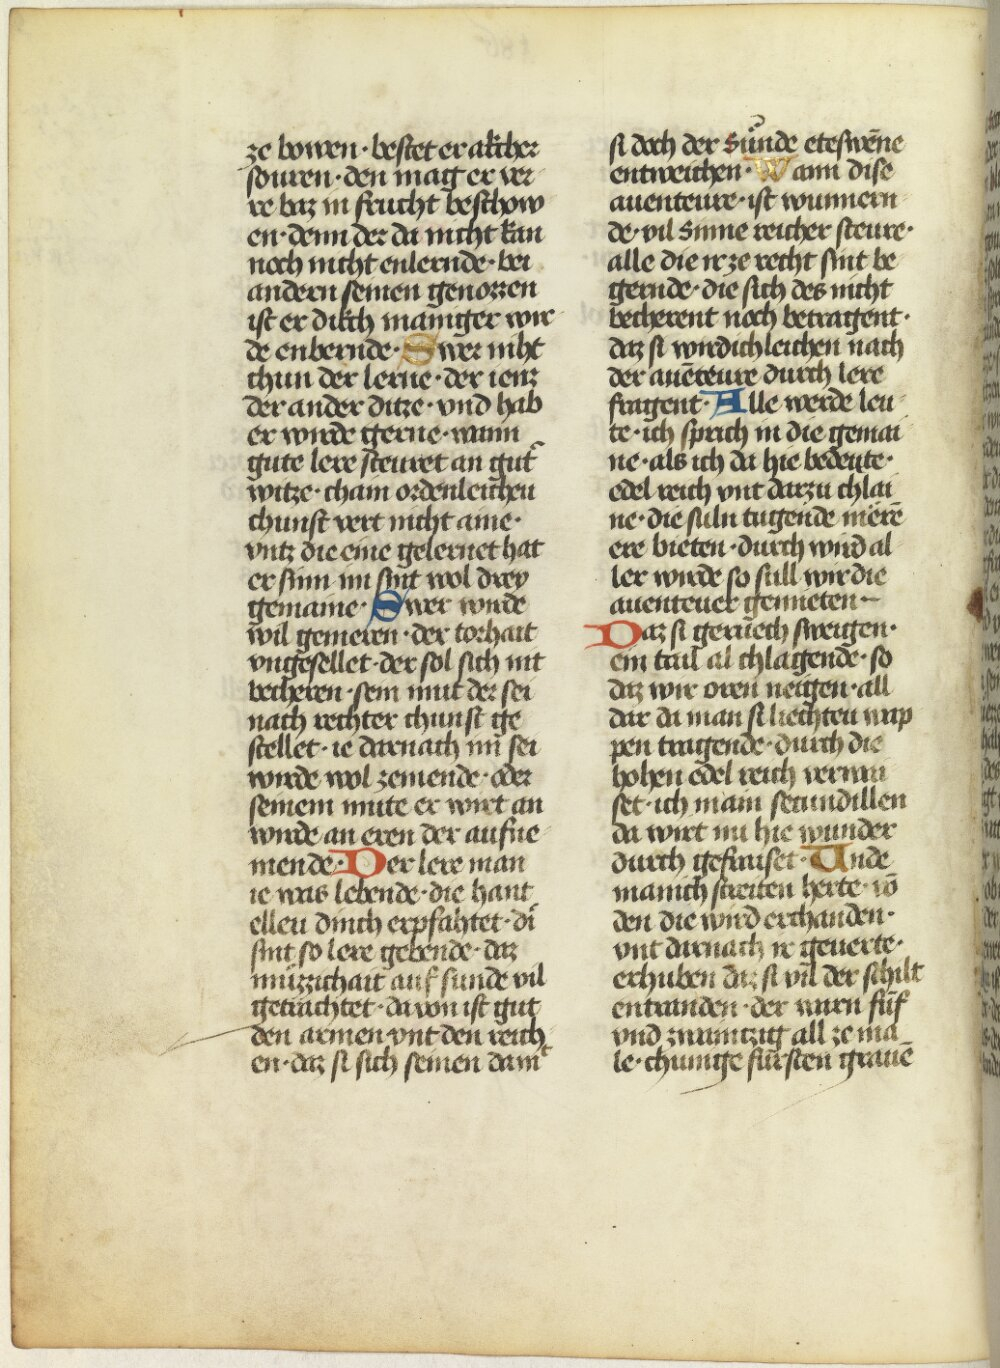 ze bowen · bestet er akcher
souren · den mag er ver
re baz in frucht beschow
en · denn der da nicht kan
noch nicht enlernde · bei
andern seinen genozzen
ist er dikch maniger wir
de enbernde · Swer niht
chun der lerne · der ienz
der ander ditze · vnd hab
er wirde gerne · wann
gute lere steuret an gut̃
witze · cham ordenleichen
chunst vert nicht aine ·
vntz die eine gelernet hat
er sinn im sint wol drey
gemaine · Swer wirde
wil gemeren · der torhait
vngesellet · der sol sich nit
becheren · sein mut der sei
nach rechter chunst ge
stellet · ie darnach im sei
wirde wol zemende · oder
seinem mute er wirt an
wirde an eren der aufne
mende · Der lere man
ie was lebende · die hant
ellen durch erpfahtet · di
sint so lere gebende · daz
müzzichait auf sunde vil
getrachtet · da von ist gut
den armen vnt den reich
en · daz si sich seinen damͭ
si doch der sünde eteswēne
entweichen · Wann dise
auenteure · ist wunnern
de · vil sinne reicher steure ·
alle die ir ze recht sint be
gernde · die sich des nicht
becherent noch betragent ·
daz si wirdichleichen nach
der auēteure durch lere
fragent · Alle werde leu
te · ich sprich in die gemai
ne · als ich da hie bedeute ·
edel reich vnt darzu chlai
ne · die suln tugende merē
ere bieten · durch wird al
ler wirde so sull wir die
auenteuer genneten
Daz si geruech sweigen ·
ein tail al chlagende · so
daz wir oren neigen · all
dar da man si liechten wap
pen tragende · durch die
hohen edel reich verwai
set · ich main secundillen
da wirt nu hie wunder
durch gefraiset · Unde
manich streiten herte · vō
den die wird erchanden ·
vnt darnach ir geuerte ·
erhuben daz si vil der schilt
entranden · der warn fünf
vnd zwaintzig all ze ma
le · chunige fürsten grauē